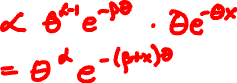 ∝ θ^{α-1} e^{-βθ} · θe^{-θx}
= θ^{α} e^{-(β+x)θ}